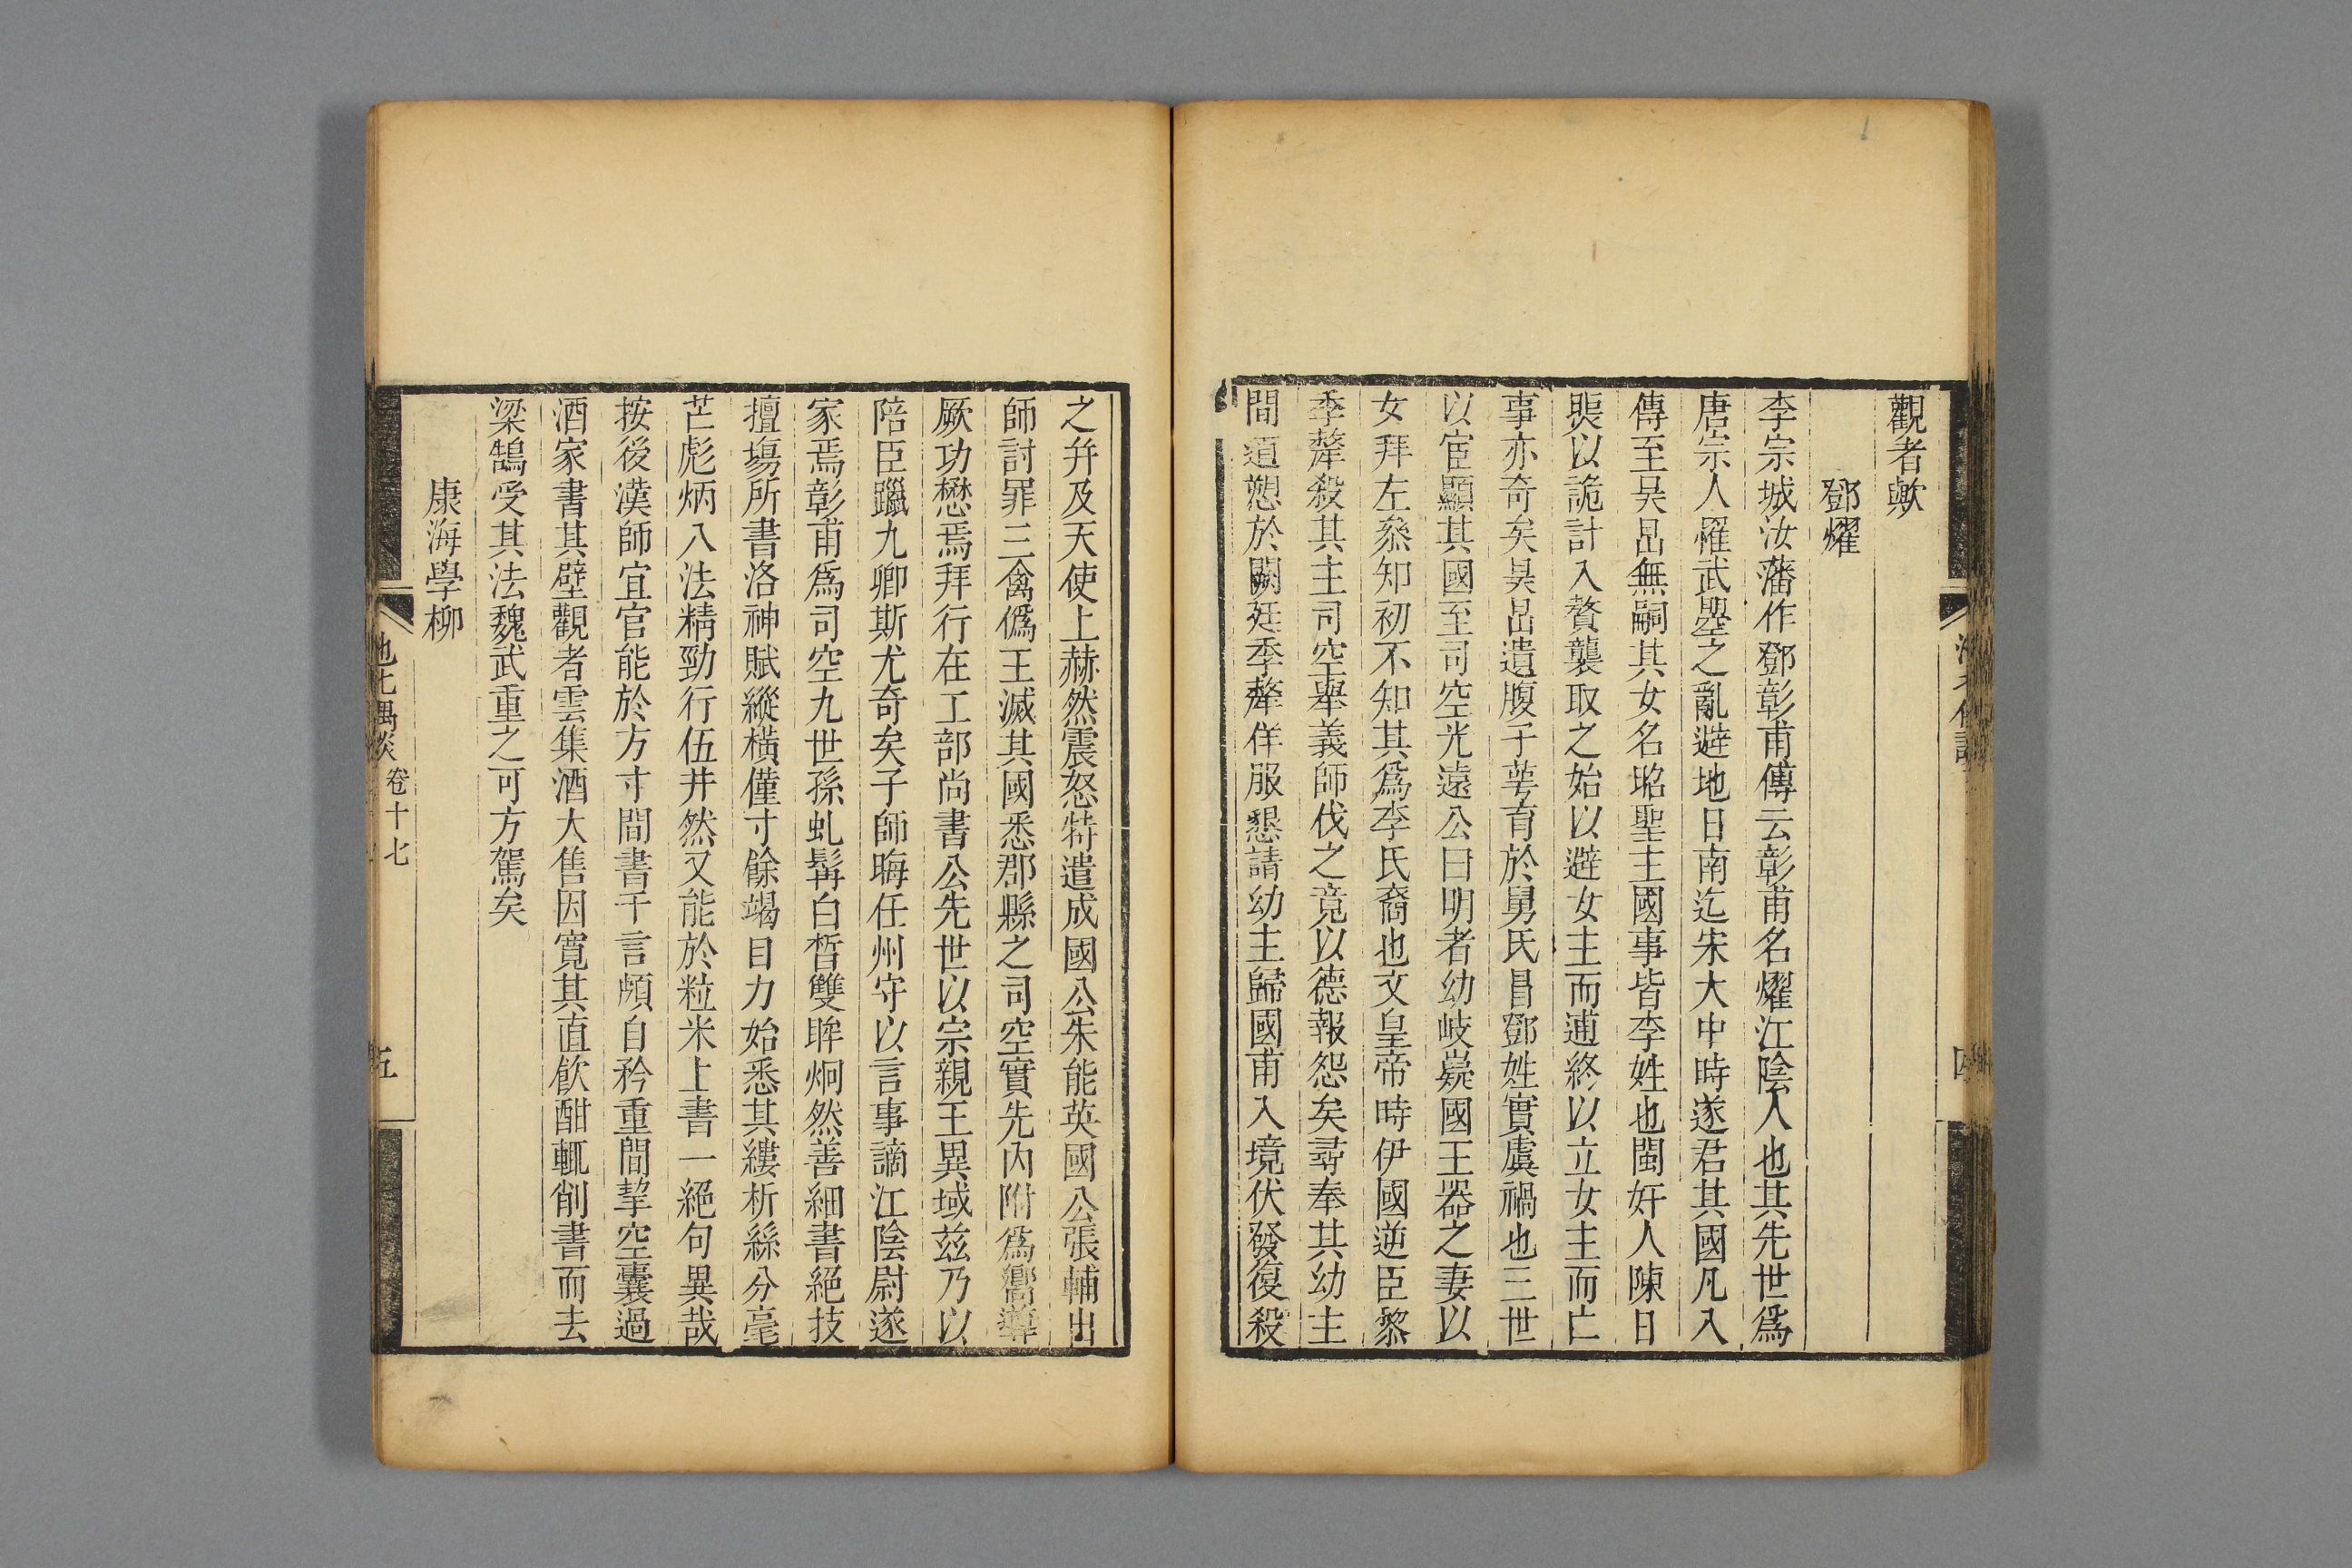 觀者歟
鄧燿
李宗城汝藩作鄧彰甫傳云彰甫名燿江陰人也其先世爲
唐宗人罹武曌之亂避地日南迄宋大中時遂君其國凡入
傳至吳旵無嗣其女名昭聖主國事皆李姓也閩奸人陳日
煚以詭計入贅襲取之始以避女主而逋終以立女主而亡
事亦奇矣昊旵遺腹子蕚育於舅氏冒鄧姓實虞禍也三世
以宦顯其國至司空光遠公曰明者幼岐嶷國王器之妻以
女拜左叅知初不知其爲李氏裔也文皇帝時伊國逆臣黎
季犛殺其主司空舉義師伐之竟以德報怨矣尋奉其幼主
間道愬於闕廷季犛佯服懇請幼主歸國甫入境伏發復殺
之幷及天使上赫然震怒特遣成國公朱能英國公張輔出
師討罪三禽僞王滅其國悉郡縣之司空實先內附爲嚮導
厥功懋焉拜行在工部尚書公先世以宗親王異域玆乃以
陪臣躐九卿斯尤奇矣子師晦任州守以言事謫江陰尉遂
家焉彰甫爲司空九世孫虬髯白晳雙眸炯然善細書絕技
擅塲所書洛神賦縱橫僅寸餘竭目力始悉其縷析絲分毫
芒彪炳八法精勁行伍井然又能於粒米上書一絕句異哉
按後漢師宜官能於方寸間書千言頗自矜重間挈空囊過
酒家書其壁觀者雲集酒大售因寬其直飲酣輒削書而去
梁鵠受其法魏武重之可方駕矣
康海學柳
池北偶談 卷十七 五